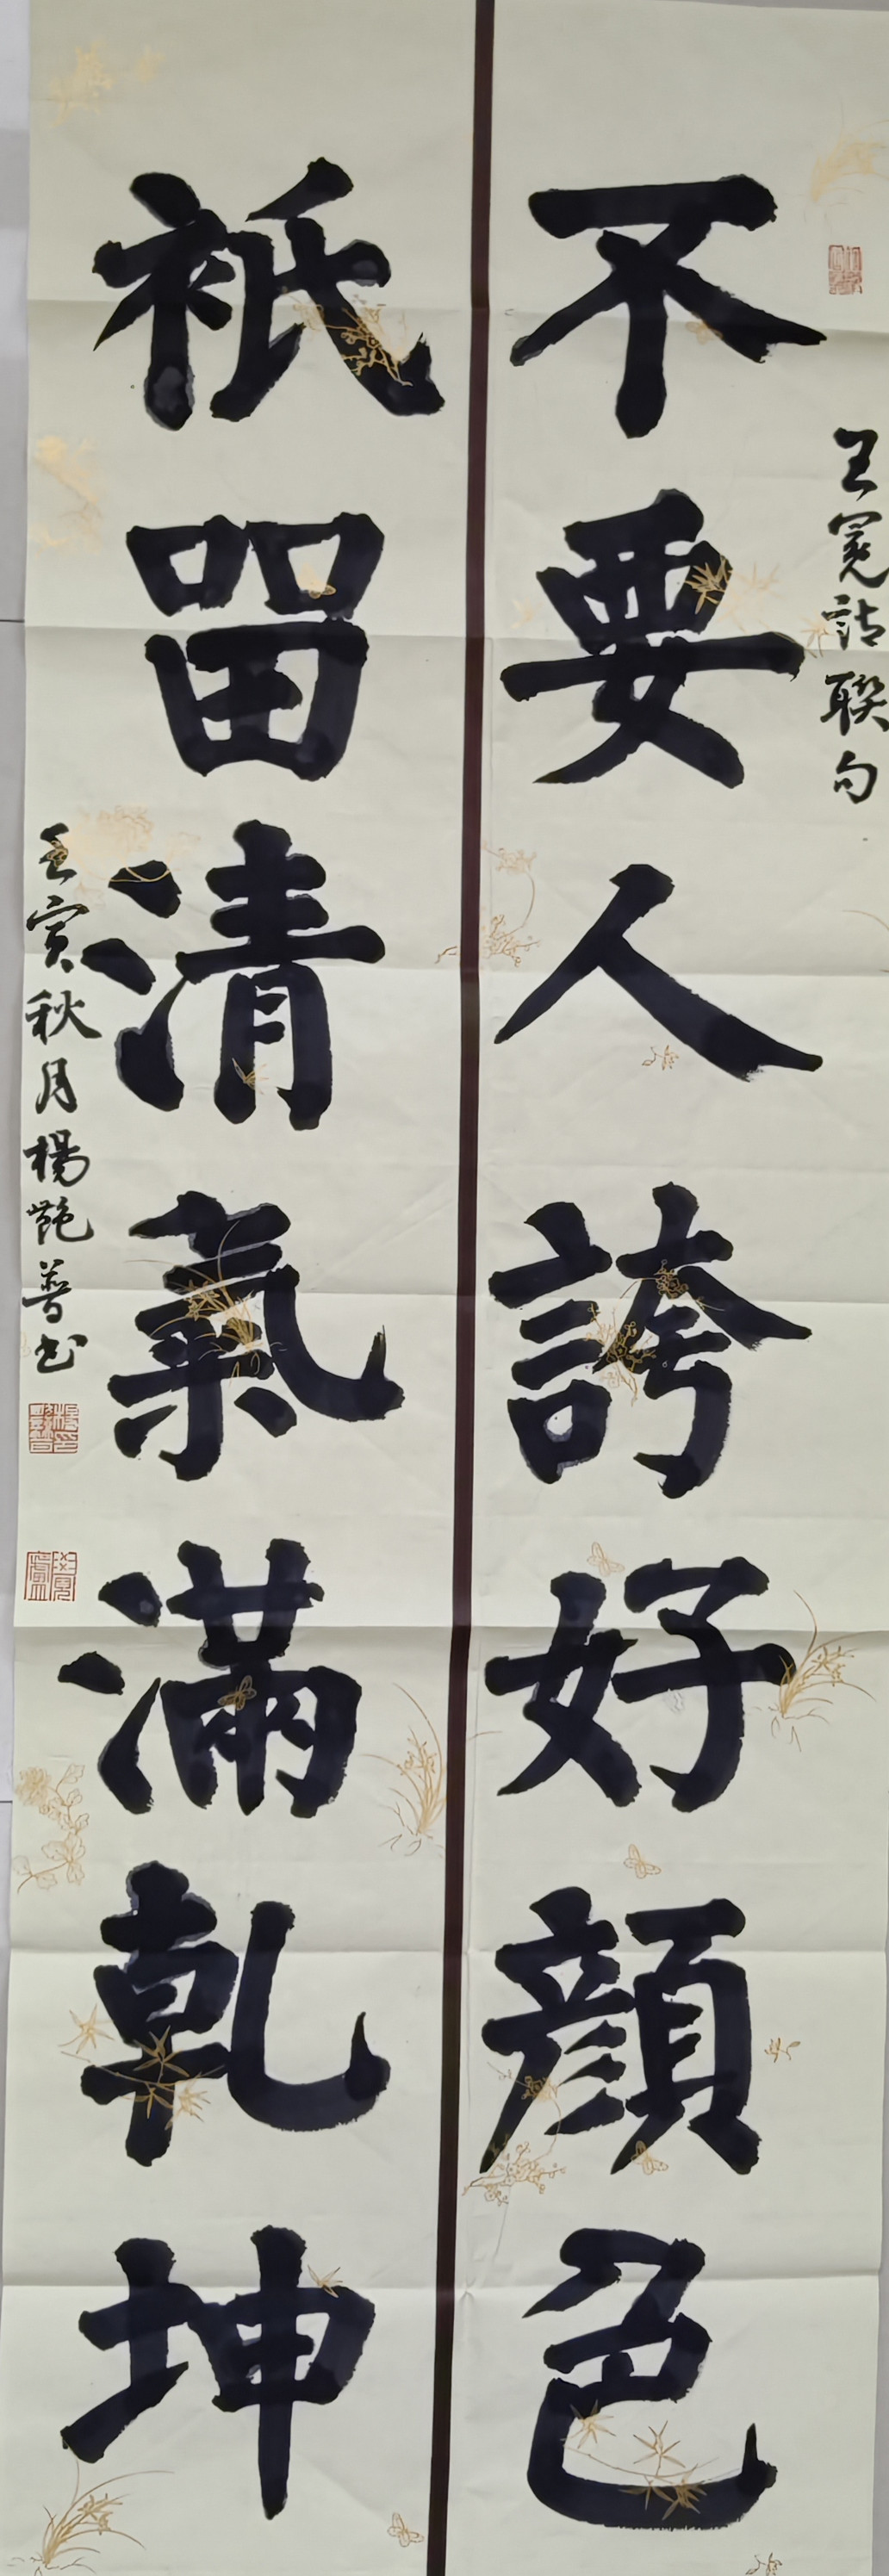 王冕詩聯句
不要人誇好顔色
衹留清氣滿乾坤
壬寅秋月楊艷普书